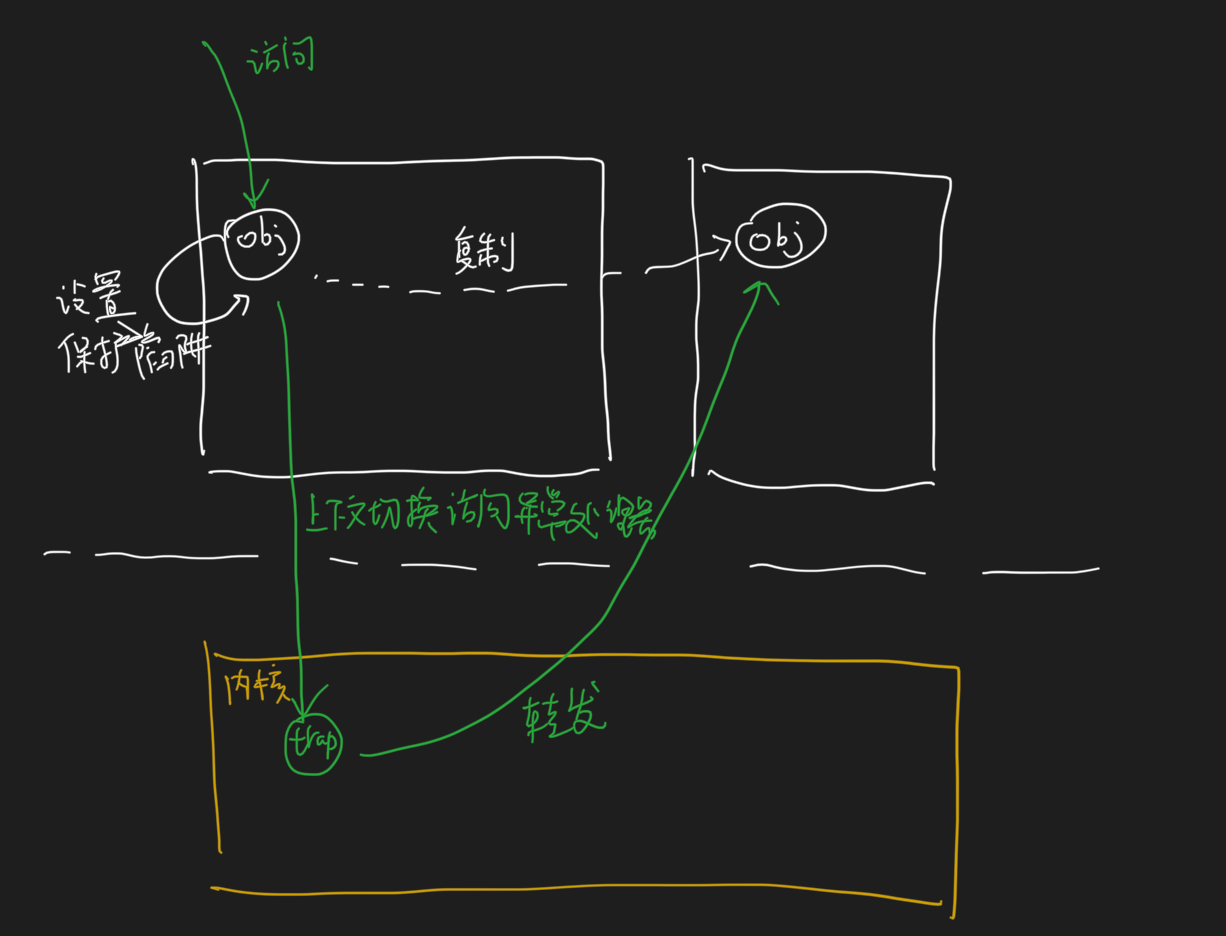 访问
obj
复制
obj
设置
保护陷阱
上下文切换 访问异常处理器
内核
trap
转发